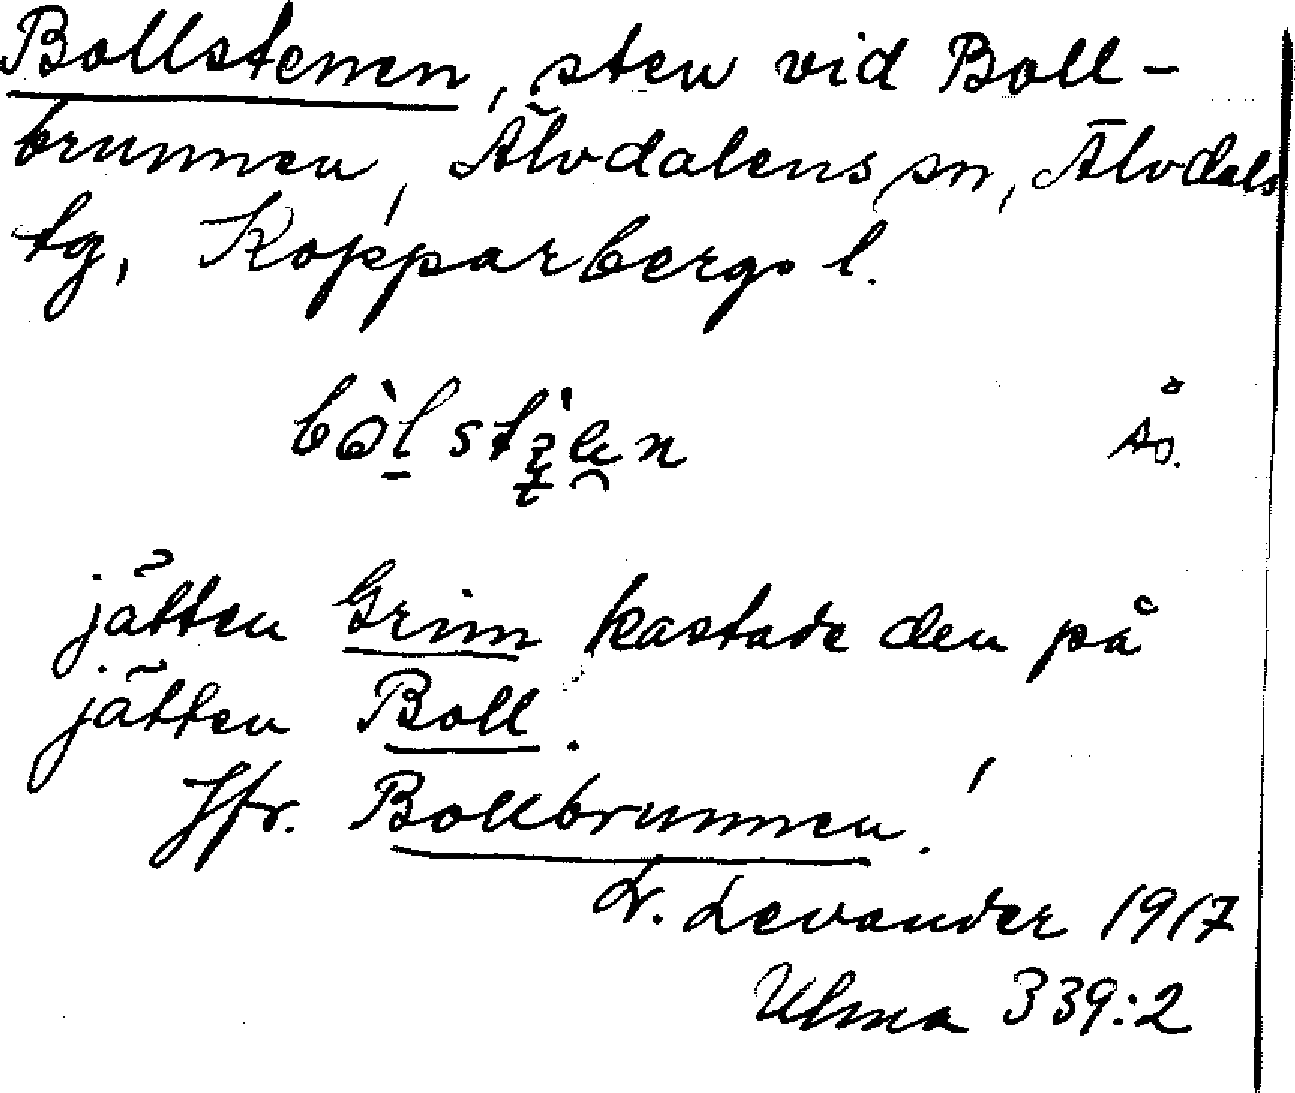 Bollstenen, sten vid Boll-
brunnen, Älvdalens sn, Älvdals
tg, Kopparbergs l.
Ås.
jätten Grim kastade den på
jätten Boll.
Jfr. Bollbrunnen!
L. Levander 1917
Ulma 339:2